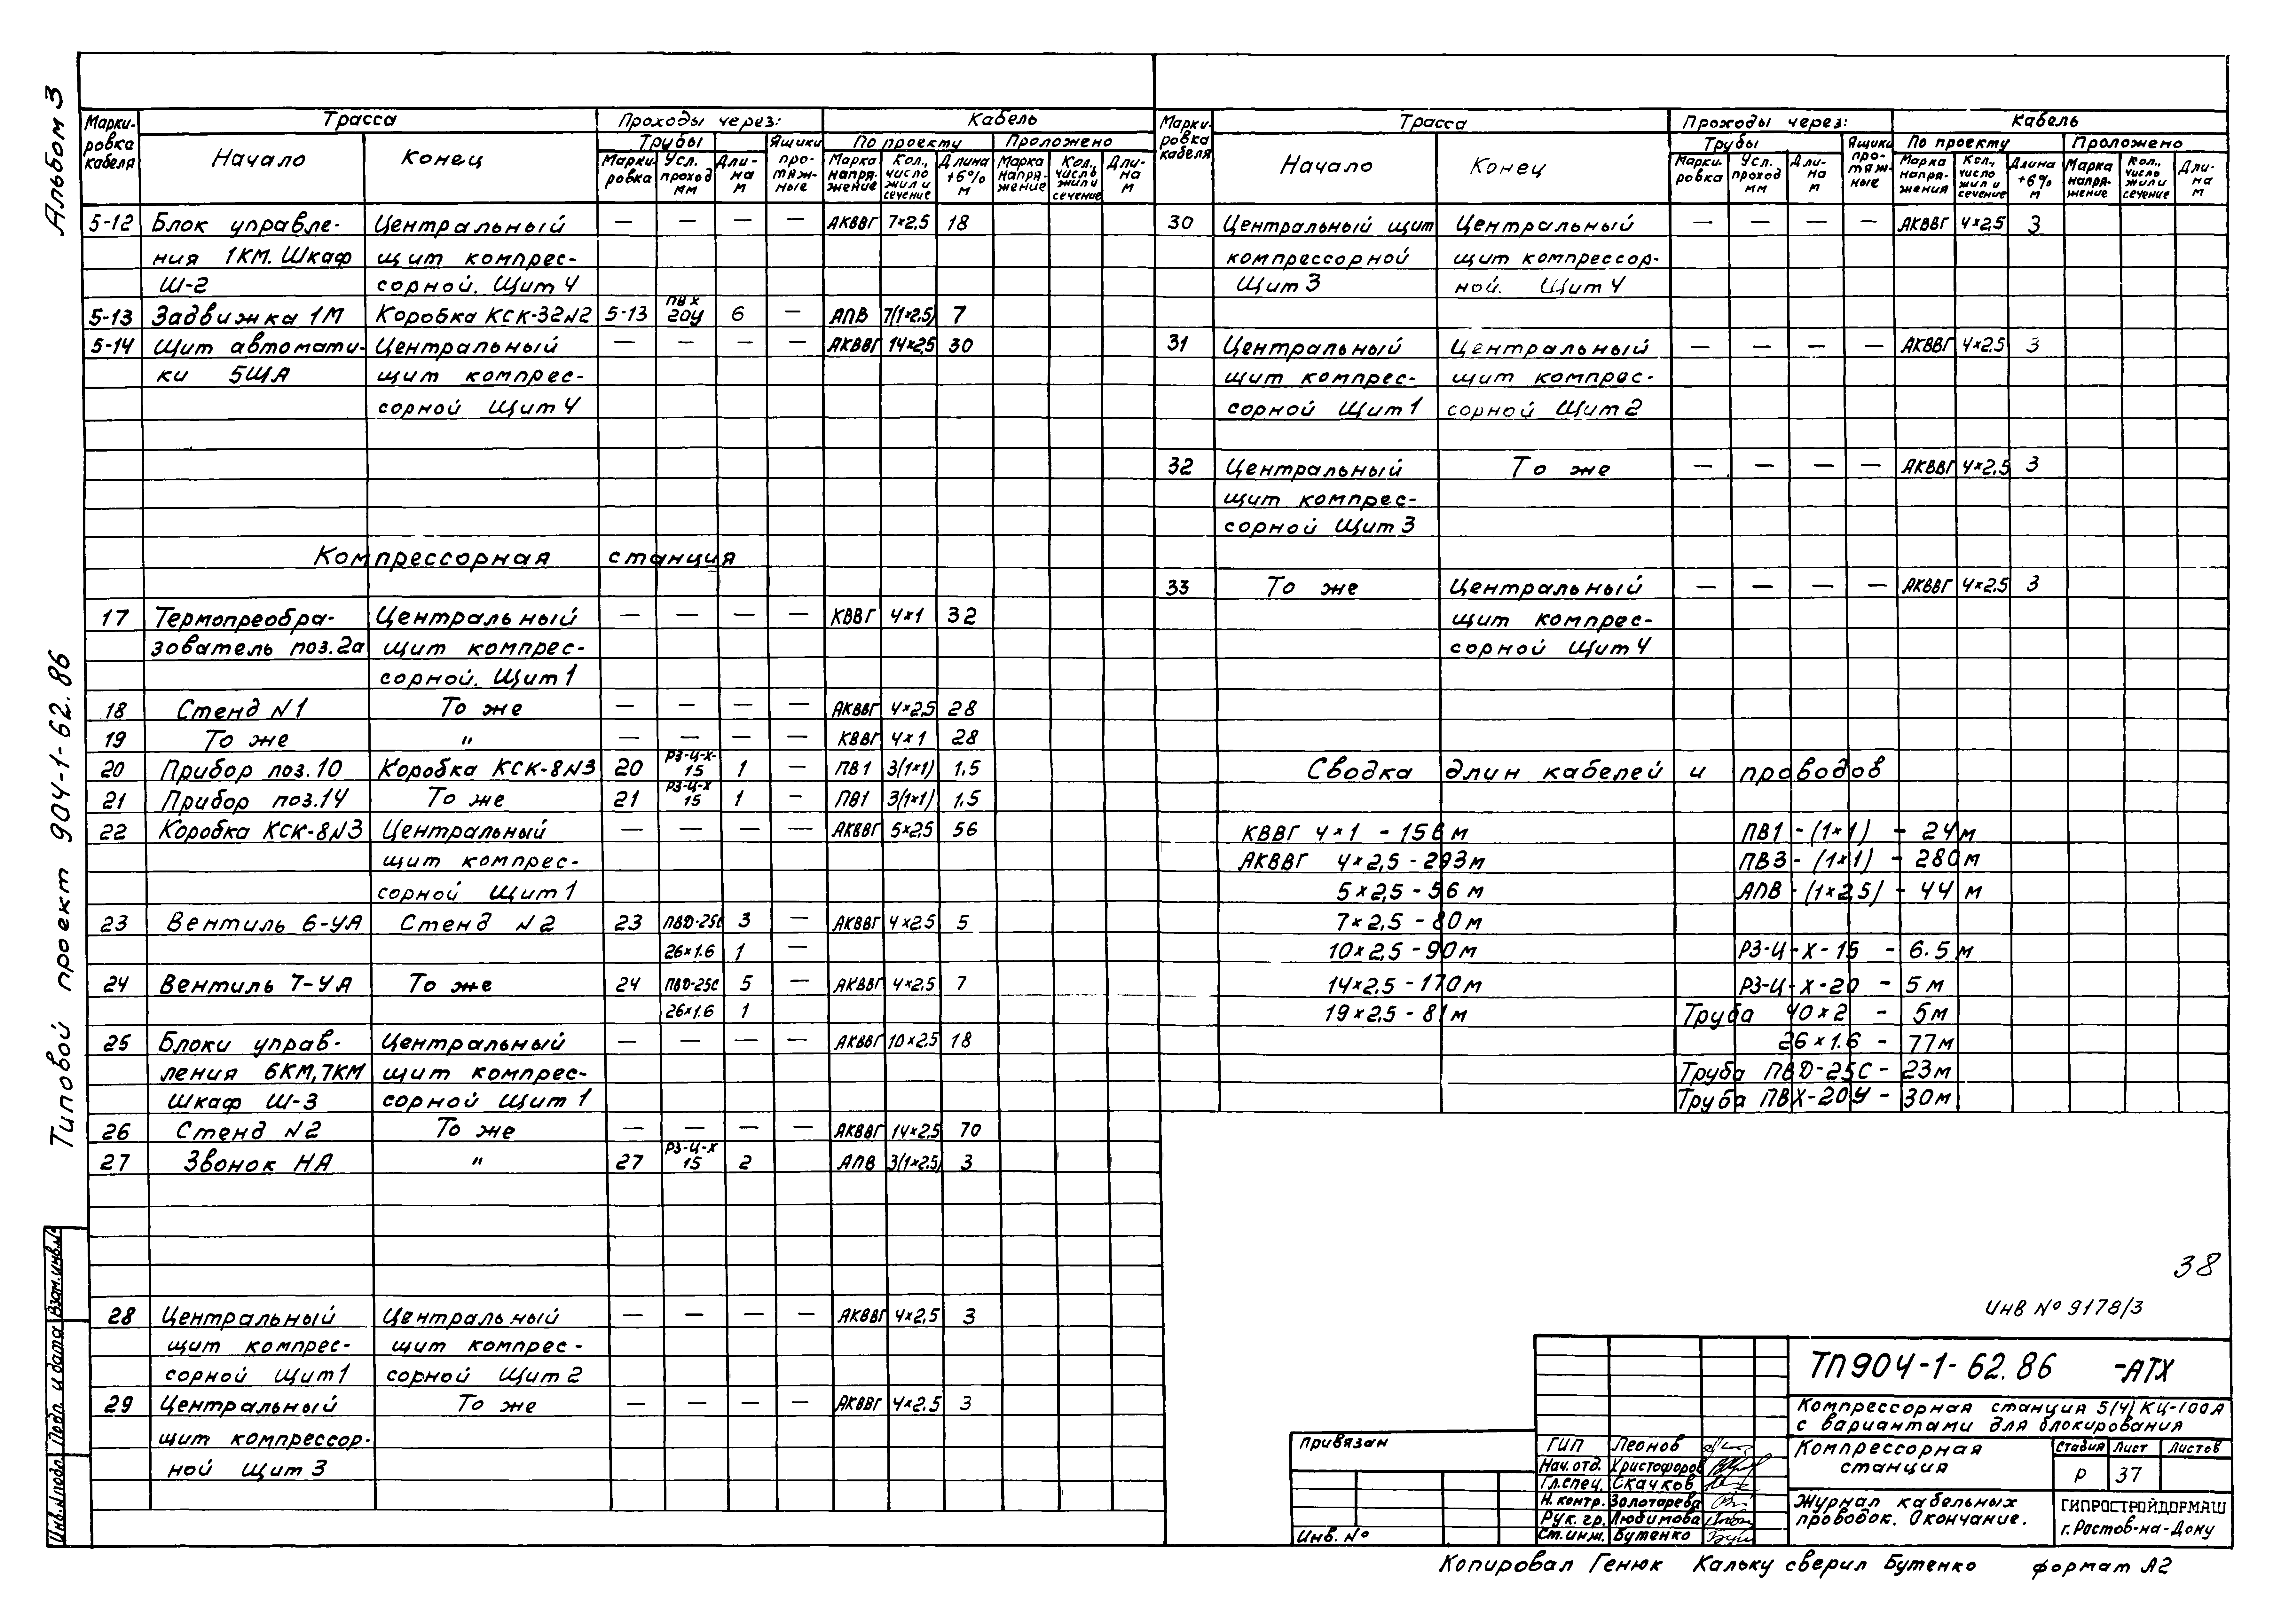 Альбом 3
Типовой проект 904-1-62.86
Марки-ровка кабеля | Трасса | Проходы через: | Кабель
Начало | Конец | Трубы | Ящики протяжные | По проекту | Проложено
Марки-ровка | Усл. проход мм | Дли-на м | Марка напря-жение | Кол., число жил и сечение | Длина +6% м | Марка напря-жение | Кол., число жил и сечение | Дли-на м
5-12 Блок управле- Центральный — — — — АКВВГ 7×2,5 18
ния 1КМ. Шкаф щит компрес-
Ш-2 сорной. Щит 4
5-13 Задвижка 1М Коробка КСК-32 N2 5-13 ПВХ 20У 6 — АПВ 7(1×2,5) 7
5-14 Щит автомати- Центральный — — — — АКВВГ 14×2,5 30
ки 5ЩА щит компрес-
сорной Щит 4
Компрессорная станция
17 Термопреобра- Центральный — — — — КВВГ 4×1 32
зователь поз.2а щит компрес-
сорной. Щит 1
18 Стенд N1 То же — — — — АКВВГ 4×2,5 28
19 То же " — — — — КВВГ 4×1 28
20 Прибор поз.10 Коробка КСК-8 N3 20 РЗ-Ц-Х-15 1 — ПВ1 3(1×1) 1.5
21 Прибор поз.14 То же 21 РЗ-Ц-Х 15 1 — ПВ1 3(1×1) 1.5
22 Коробка КСК-8 N3 Центральный — — — — АКВВГ 5×2,5 56
щит компрес-
сорной Щит 1
23 Вентиль 6-УА Стенд N2 23 ПВД-25С 3 — АКВВГ 4×2,5 5
26×1.6 1 —
24 Вентиль 7-УА То же 24 ПВД-25С 5 — АКВВГ 4×2,5 7
26×1.6 1
25 Блоки управ- Центральный — — — — АКВВГ 10×2,5 18
ления 6КМ,7КМ щит компрес-
Шкаф Ш-3 сорной Щит 1
26 Стенд N2 То же — — — — АКВВГ 14×2,5 70
27 Звонок НА " 27 РЗ-Ц-Х 15 2 АПВ 3(1×2,5) 3
28 Центральный Центральный — — — — АКВВГ 4×2,5 3
щит компрес- щит компрес-
сорной Щит 1 сорной Щит 2
29 Центральный То же — — — — АКВВГ 4×2,5 3
щит компрессор-
ной Щит 3
Марки-ровка кабеля | Трасса | Проходы через: | Кабель
Начало | Конец | Трубы | Ящики протяж-ные | По проекту | Проложено
Марки-ровка | Усл. проход мм | Дли-на м | Марка напря-жения | Кол., число жил и сечение | Длина +6% м | Марка напря-жение | Кол., число жил и сечение | Дли-на м
30 Центральный щит Центральный — — — — АКВВГ 4×2,5 3
компрессорной щит компрессор-
Щит 3 ной. Щит 4
31 Центральный Центральный — — — — АКВВГ 4×2,5 3
щит компрес- щит компрес-
сорной Щит 1 сорной Щит 2
32 Центральный То же — — — — АКВВГ 4×2,5 3
щит компрес-
сорной Щит 3
33 То же Центральный — — — — АКВВГ 4×2,5 3
щит компрес-
сорной Щит 4
Сводка длин кабелей и проводов
КВВГ 4×1 - 156 м ПВ1 - (1×1) - 24 м
АКВВГ 4×2,5 - 293 м ПВ3 - (1×1) - 280 м
5×2,5 - 56 м АПВ - (1×2,5) - 44 м
7×2,5 - 80 м
10×2,5 - 90 м РЗ-Ц-Х-15 - 6.5 м
14×2,5 - 170 м РЗ-Ц-Х-20 - 5 м
19×2,5 - 81 м Труба 40×2 - 5 м
26×1.6 - 77 м
Труба ПВД-25С - 23 м
Труба ПВХ-20У - 30 м
38
Инв № 9178/3
ТП904-1-62.86 -АТХ
Компрессорная станция 5(4) КЦ-100А
с вариантами для блокирования
Компрессорная станция
Стадия Лист Листов
Р 37
Журнал кабельных проводок. Окончание.
ГИПРОСТРОЙДОРМАШ
г. Ростов-на-Дону
ГИП Леонов
Нач.отд. Христофоров
Гл.спец. Скачков
Н.контр. Золотарева
Рук.гр. Любимова
Ст.инж. Бутенко
Привязан
Инв. №
Инв.N подл. Подп. и дата Взам.инв.N
Копировал Генюк Кальку сверил Бутенко формат А2